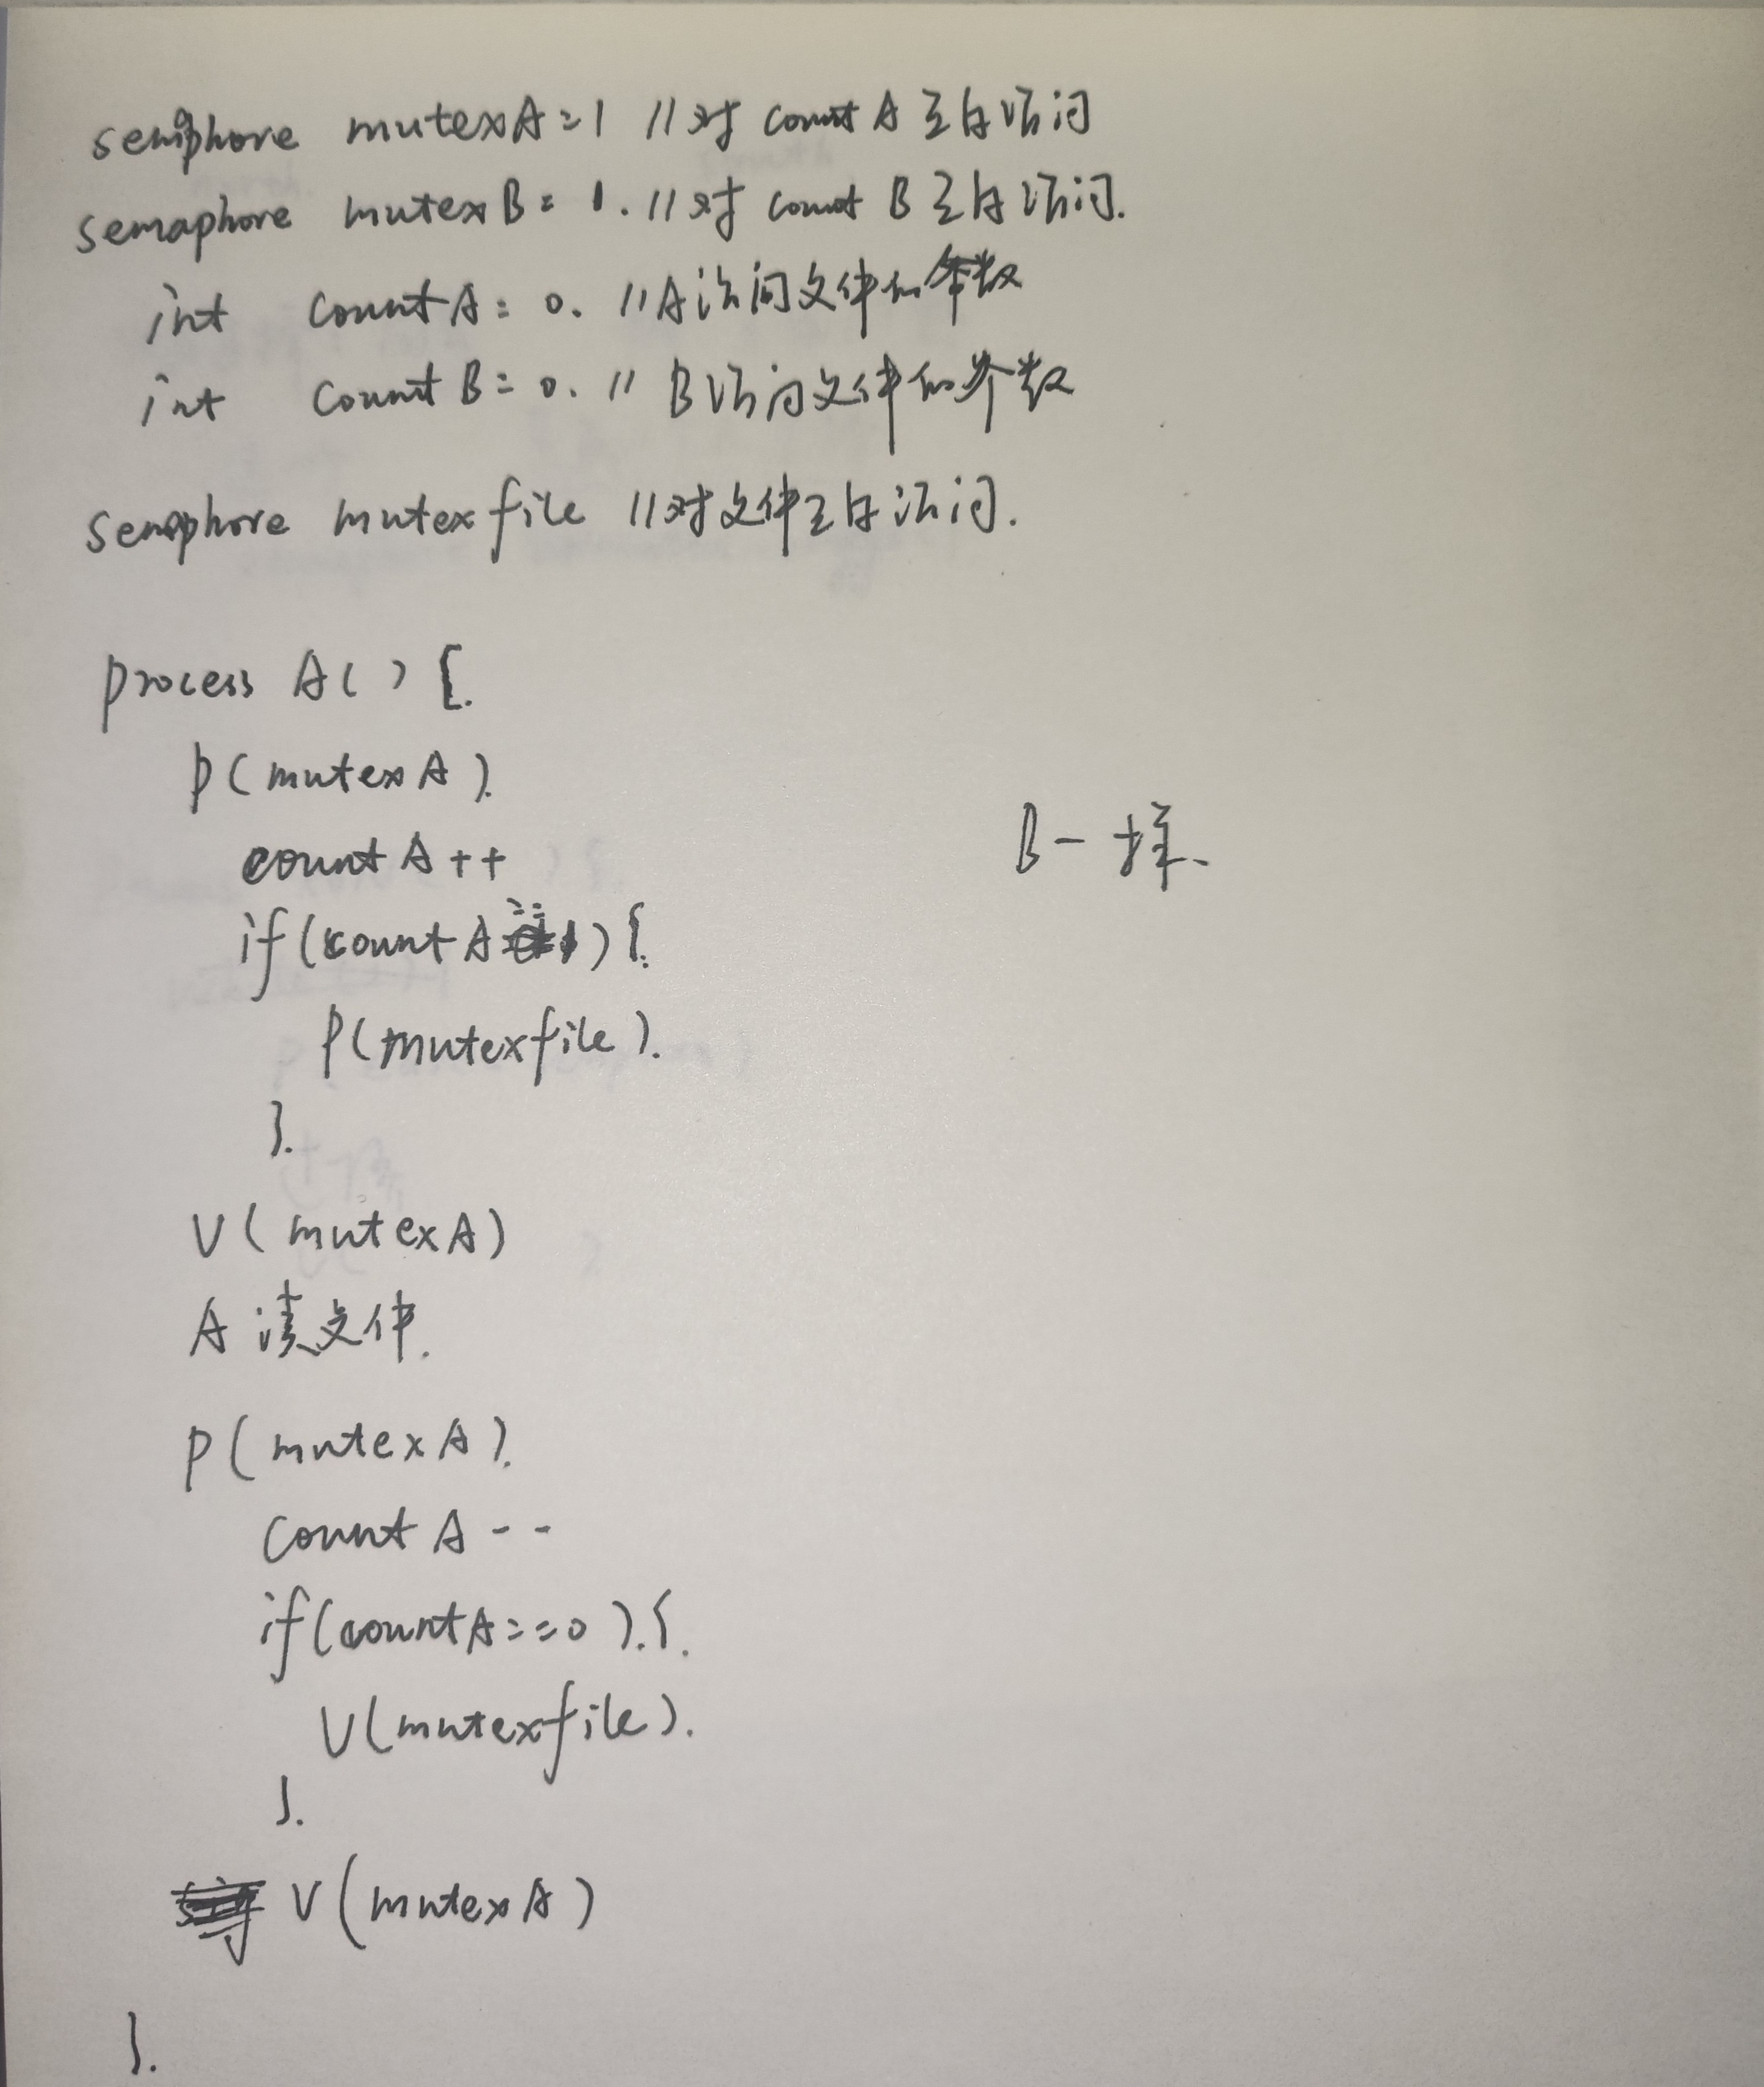 semaphore mutexA=1 //对 count A 互斥访问
semaphore mutex B= 1. //对 count B 互斥访问.
int count A= 0. //A访问文件的个数
int count B= 0. // B访问文件的个数
semaphore mutexfile //对文件互斥访问.
process A( ) {.
P(mutex A).
count A ++
if(count A==1) {.
P(mutexfile).
}.
B一样、
V( mutexA)
A 读文件.
P(mutexA).
count A --
if(countA==0).{.
V(mutexfile).
}.
V(mutexA)
}.